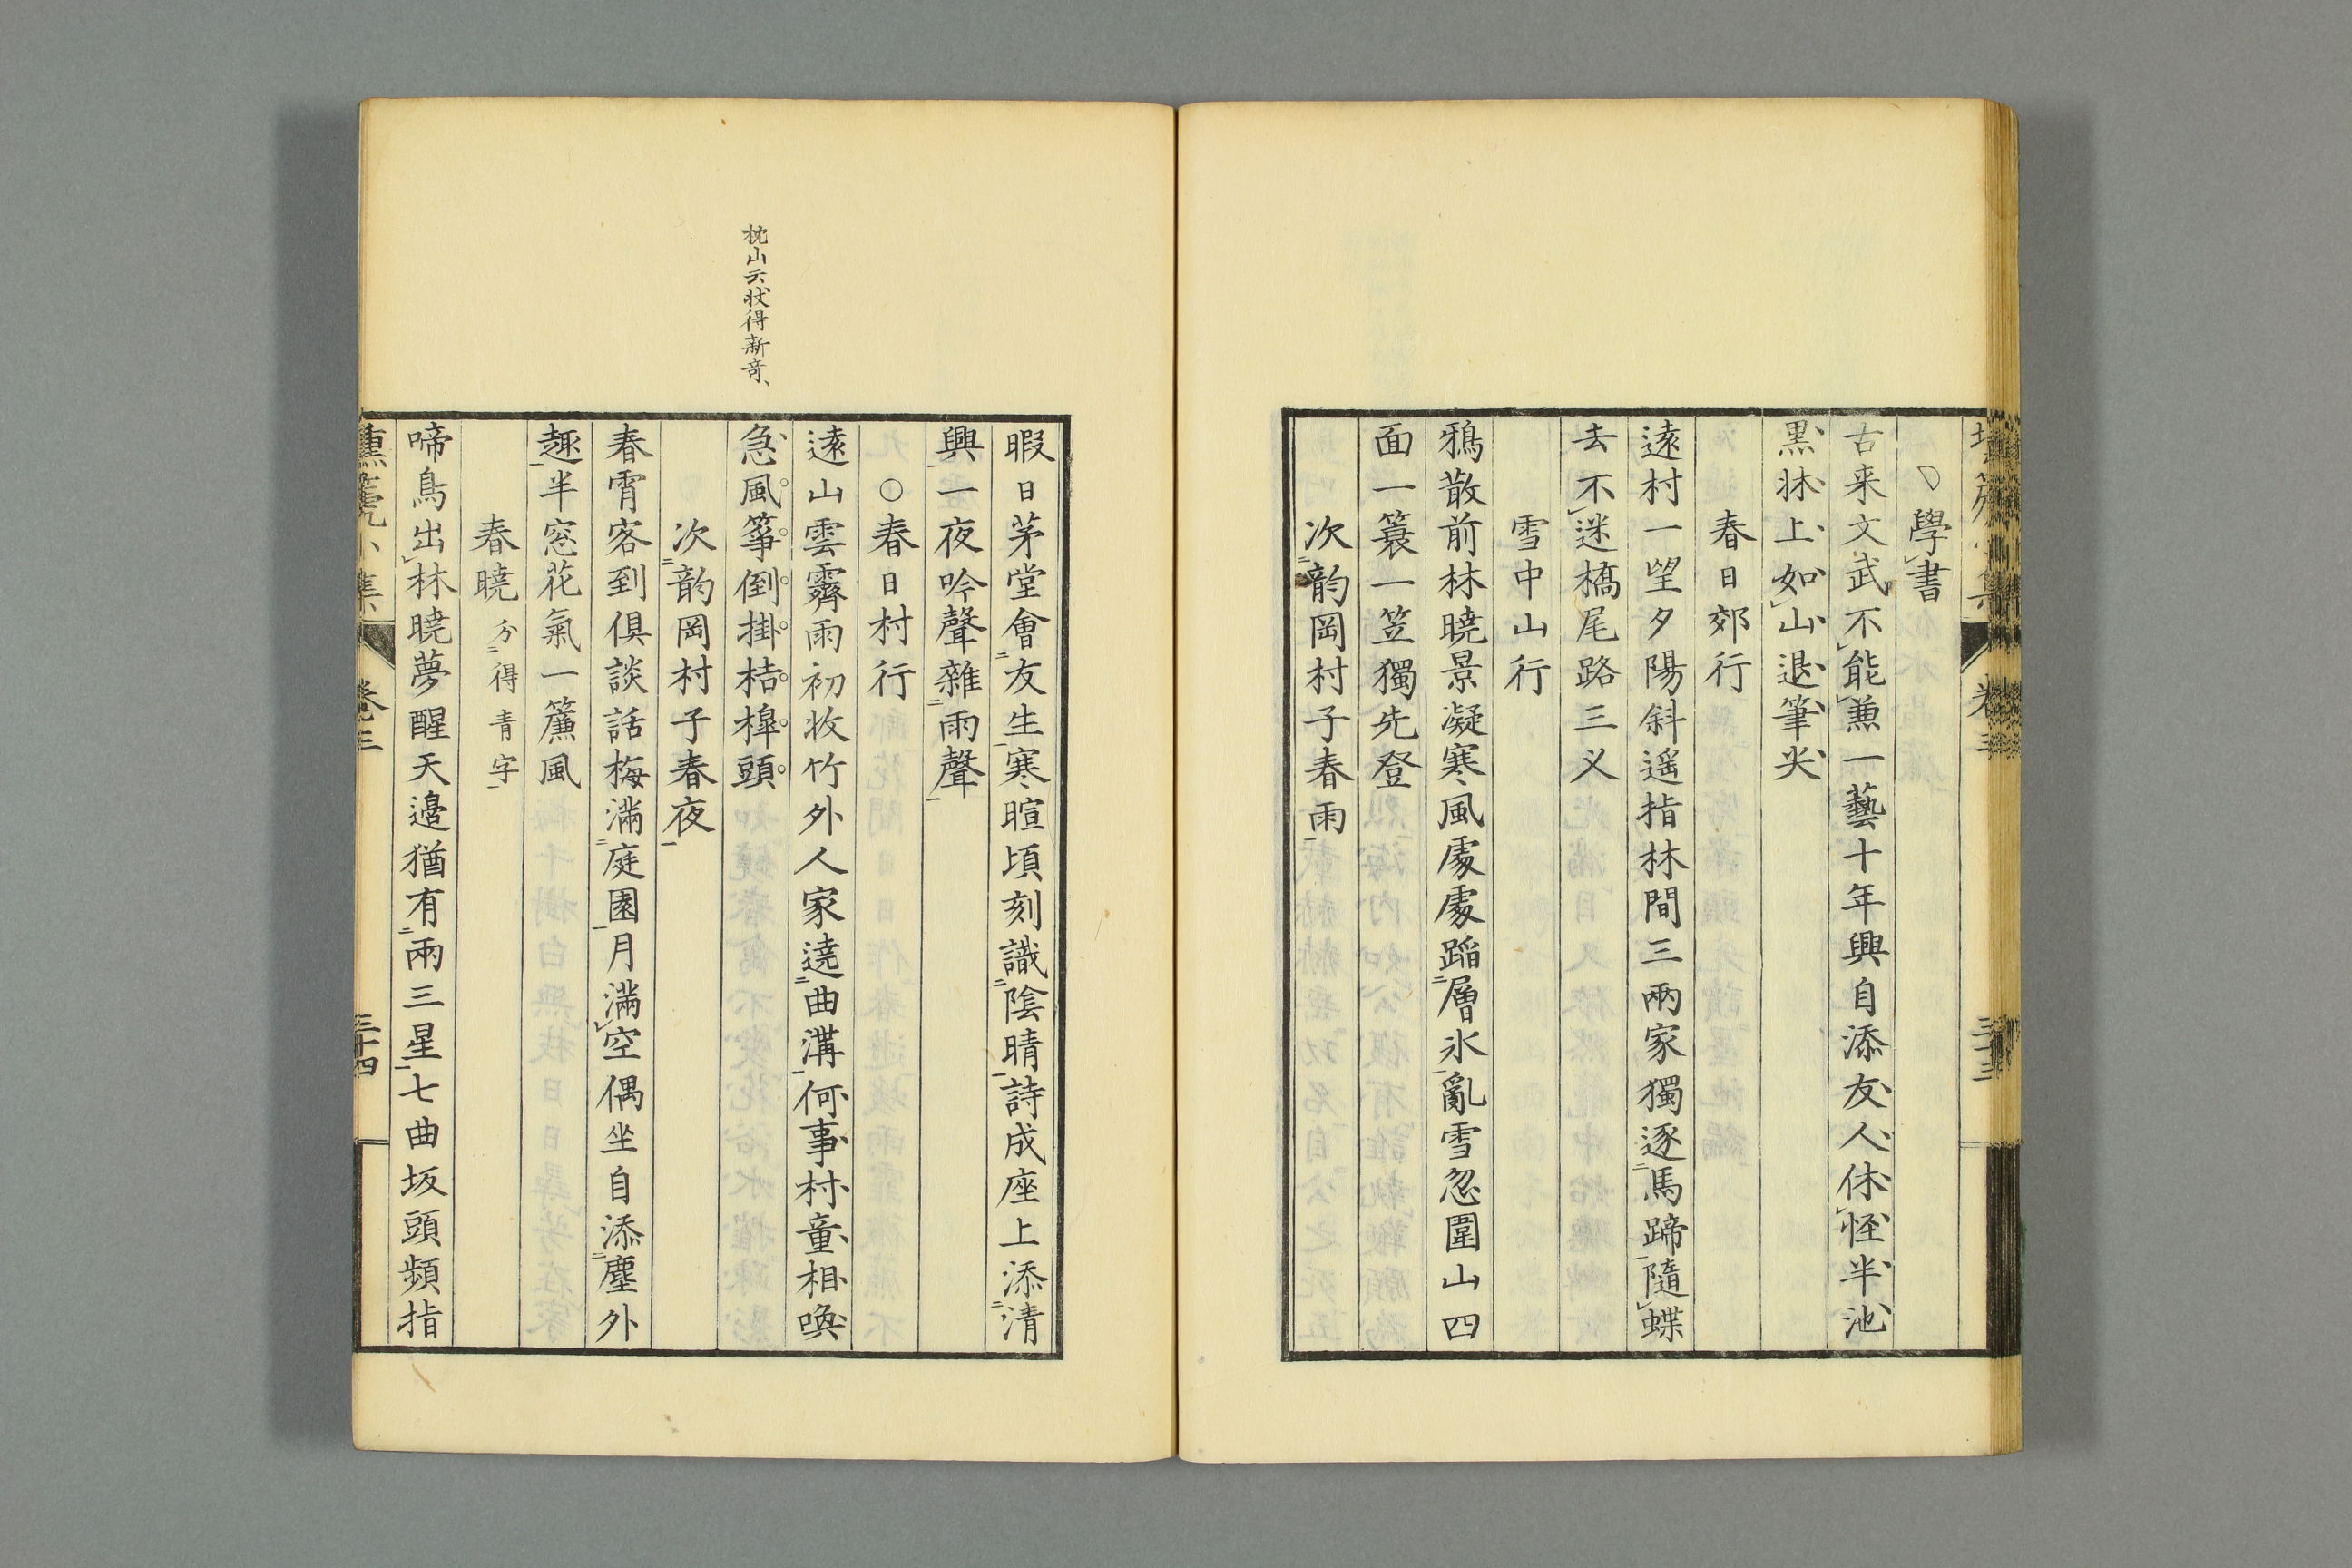 學書
古来文武不能兼一藝十年興自添友人休怪半池
黒牀上如山退筆尖
春日郊行
遠村一望夕陽斜遥指林間三兩家獨逐馬蹄隨蝶
去不迷橋尾路三义
雪中山行
鴉散前林曉景凝寒風處處蹈層氷亂雪忽圍山四
面一簑一笠獨先登
次韵岡村子春雨
暇日茅堂會友生寒暄頃刻識陰晴詩成座上添清
興一夜吟聲雜雨聲
○春日村行
遠山雲霽雨初收竹外人家遶曲溝何事村童相喚
急風箏倒掛桔槹頭
枕山云狀得新奇、
次韵岡村子春夜
春宵客到倶談話梅滿庭園月滿空偶坐自添塵外
趣半窓花氣一簾風
春曉 分得青字
啼鳥出林曉夢醒天邉猶有兩三星七曲坂頭頻指
卷三
三十四